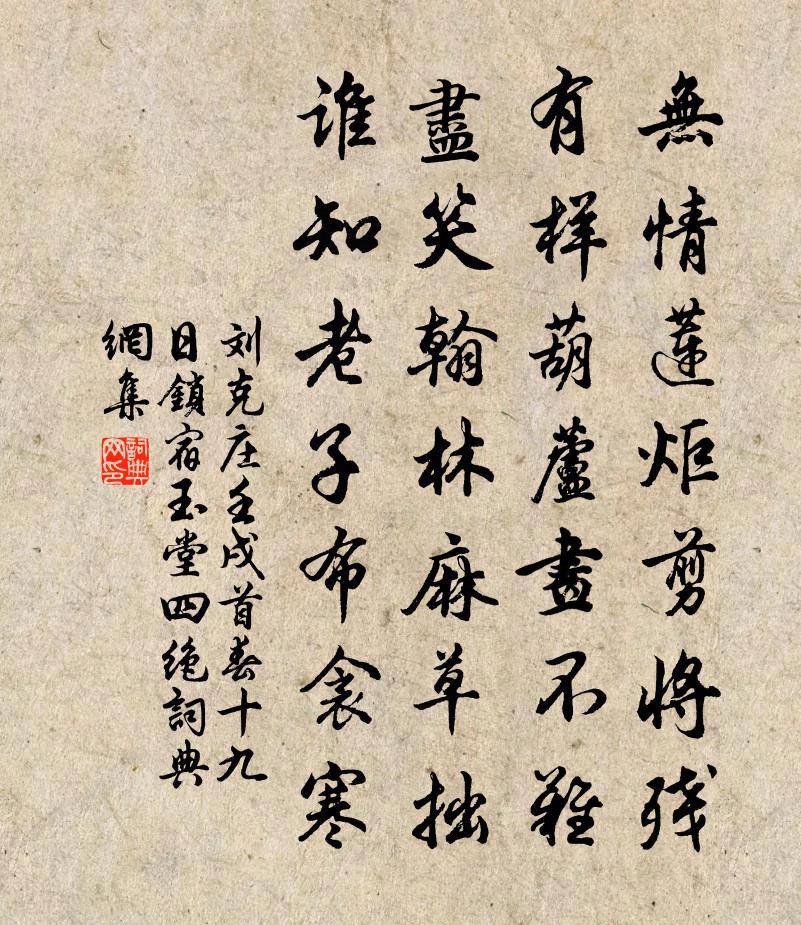 無情蓮炬剪將残
有样葫蘆畫不難
盡笑翰林麻草拙
谁知老子布衾寒
刘克庄壬戌首春十九
日鎖宿玉堂四絶詞典
網集
詞典
网印